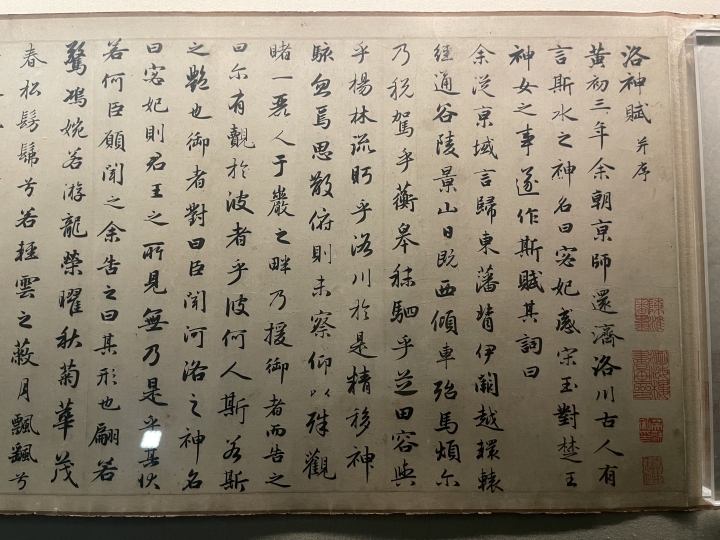 洛神賦 并序
黃初三年余朝京師還濟洛川古人有
言斯水之神名曰宓妃感宋玉對楚王
神女之事遂作斯賦其詞曰
余從京域言歸東藩背伊闕越轘轅
經通谷陵景山日既西傾車殆馬煩尔
乃稅駕乎蘅皋秣駟乎芝田容與
乎楊林流眄乎洛川於是精移神
駭忽焉思散俯則未察仰以殊觀
睹一麗人于巖之畔乃援御者而告之
曰尓有觀於彼者乎彼何人斯若斯
之艷也御者對曰臣聞河洛之神名
曰宓妃則君王之所見無乃是乎其狀
若何臣願聞之余告之曰其形也翩若
驚鴻婉若游龍榮曜秋菊華茂
春松髣髴兮若輕雲之蔽月飄飖兮